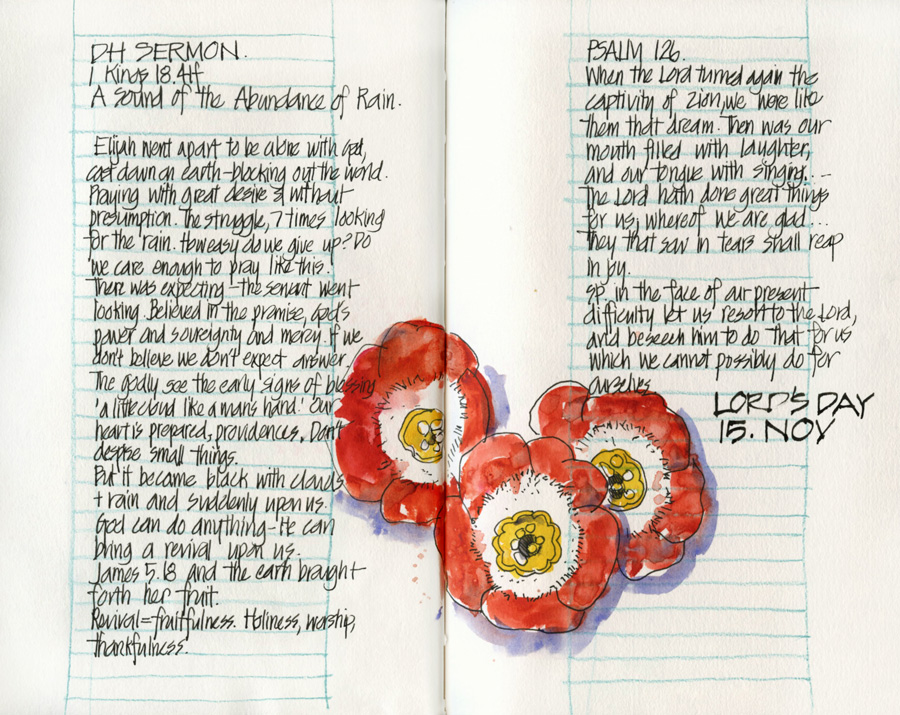 DH SERMON.
1 Kings 18.41f
A Sound of the Abundance of Rain.
Elijah went apart to be alone with God,
cast down on earth-blocking out the world.
Praying with great desire & without
presumption. The struggle, 7 times looking
for the rain. How easy do we give up? Do
we care enough to pray like this.
There was expecting - the servant went
looking. Believed in the promise, God's
power and sovereignty and mercy. If we
don't believe we don't expect answer.
The godly see the early signs of blessing
'a little cloud like a man's hand.' Our
heart is prepared, providences. Don't
despise small things.
But it became black with clouds
+ rain and suddenly upon us.
God can do anything - He can
bring a revival upon us.
James 5.18 and the earth brought
forth her fruit.
Revival = fruitfulness. Holiness, worship,
thankfulness.
PSALM 126.
When the Lord turned again the
captivity of Zion, we were like
them that dream. Then was our
mouth filled with laughter,
and our tongue with singing...-
the Lord hath done great things
for us; whereof we are glad...
they that sow in tears shall reap
in joy.
sp. in the face of our present
difficulty let us resort to the Lord,
and beseech him to do that for us
which we cannot possibly do for
ourselves.
LORD'S DAY
15. NOV